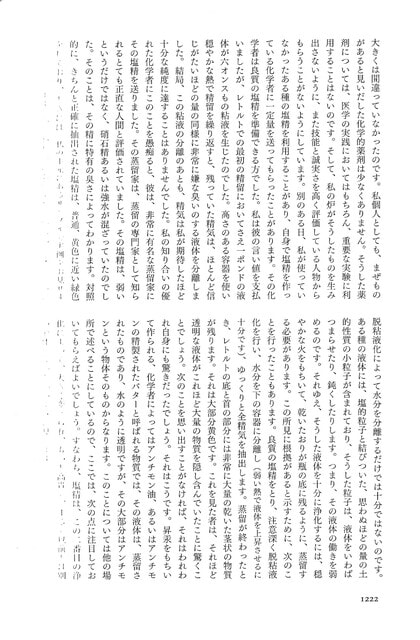 大きくは間違っていなかったのです。私個人としても、まぜもの
があると見いだした化学的薬剤は少なくありません。そうした薬
剤については、医学の実践においてはもちろん、重要な実験に利
用することはないのです。そして、私の炉がそうしたものを生み
出さないように、また技能と誠実さを高く評価している人物から
もらうことがないようにしています。別のある日、私が使ってい
なかったある種の塩精を利用することがあり、自身で塩精を作っ
ている化学者に一定量を送ってもらったことがあります。その化
学者は良質の塩精を準備できる方でした。私は彼の言い値を支払
いましたが、レトルトでの最初の精留においてさえ一ポンドの液
体が六オンスもの粘液を生じたのでした。高さのある容器を使い
穏やかな熱で精留を繰り返すと、残っていた精気は、ほとんど信
じがたいほどの量の同様に非常に嫌な臭いのする液体を分離しま
した。結局、この粘液の分離のあとも、精気は私が期待したほど
十分な純度に達することはありませんでした。私の知り合いの優
れた化学者にこのことを愚痴ると、彼は、非常に有名な蒸留家に
その塩精を送りました。その蒸留家は、蒸留の専門家として知ら
れるとても正直な人間と評価されていました。その塩精は、弱い
というだけではなく、硝石精あるいは強水が混ざっていたのでし
た。そのことは、その精に特有の臭さによってわかります。対照
的に、きちんと正確に抽出された塩精は、普通、黄色に近い緑色
脱粘液化によって水分を分離するだけでは十分ではないのです。
ある種の液体には、塩的粒子と結びついた、思わぬほどの量の土
的性質の小粒子が含まれており、そうした粒子は、液体をいわば
つまらせたり、鈍くしたりします。つまり、その液体の働きを弱
めるのです。それゆえ、そうした液体を十分に浄化するには、穏
やかな火をもちいて、乾いたおりが瓶の底に残るように、蒸留す
る必要があります。この所見に根拠があると示すために、次のこ
とを行ったこともあります。良質の塩精をとり、注意深く脱粘液
化を行い、水分を下の容器に分離し（弱い熱で液体を上昇させるに
十分です）、ゆっくりと全精気を抽出します。蒸留が終わったと
き、レトルトの底と首の部分には非常に大量の乾いた茎状の物質
が残ります。それは大部分黄色です。これを見た者は、それほど
透明な液体がこれほど大量の物質を隠し含んでいたことに驚くこ
とでしょう。次のことを思い出すことがなければ、それはわれわ
れ自身にも驚きだったでしょう。それはこうです。昇汞をもちい
て作られる、化学者によってはアンチモン油、あるいはアンチモ
ンの精製されたバターと呼ばれる物質では、その液体は、蒸留さ
れたものであり、水のように透明ですが、その大部分はアンチモ
ンという物体そのものからなります。このことについては他の場
所で述べることにしているので、ここでは、次の点に注目してお
いてもらえばよいでしょう。すなわち、塩精は、この二番目の浄
1222